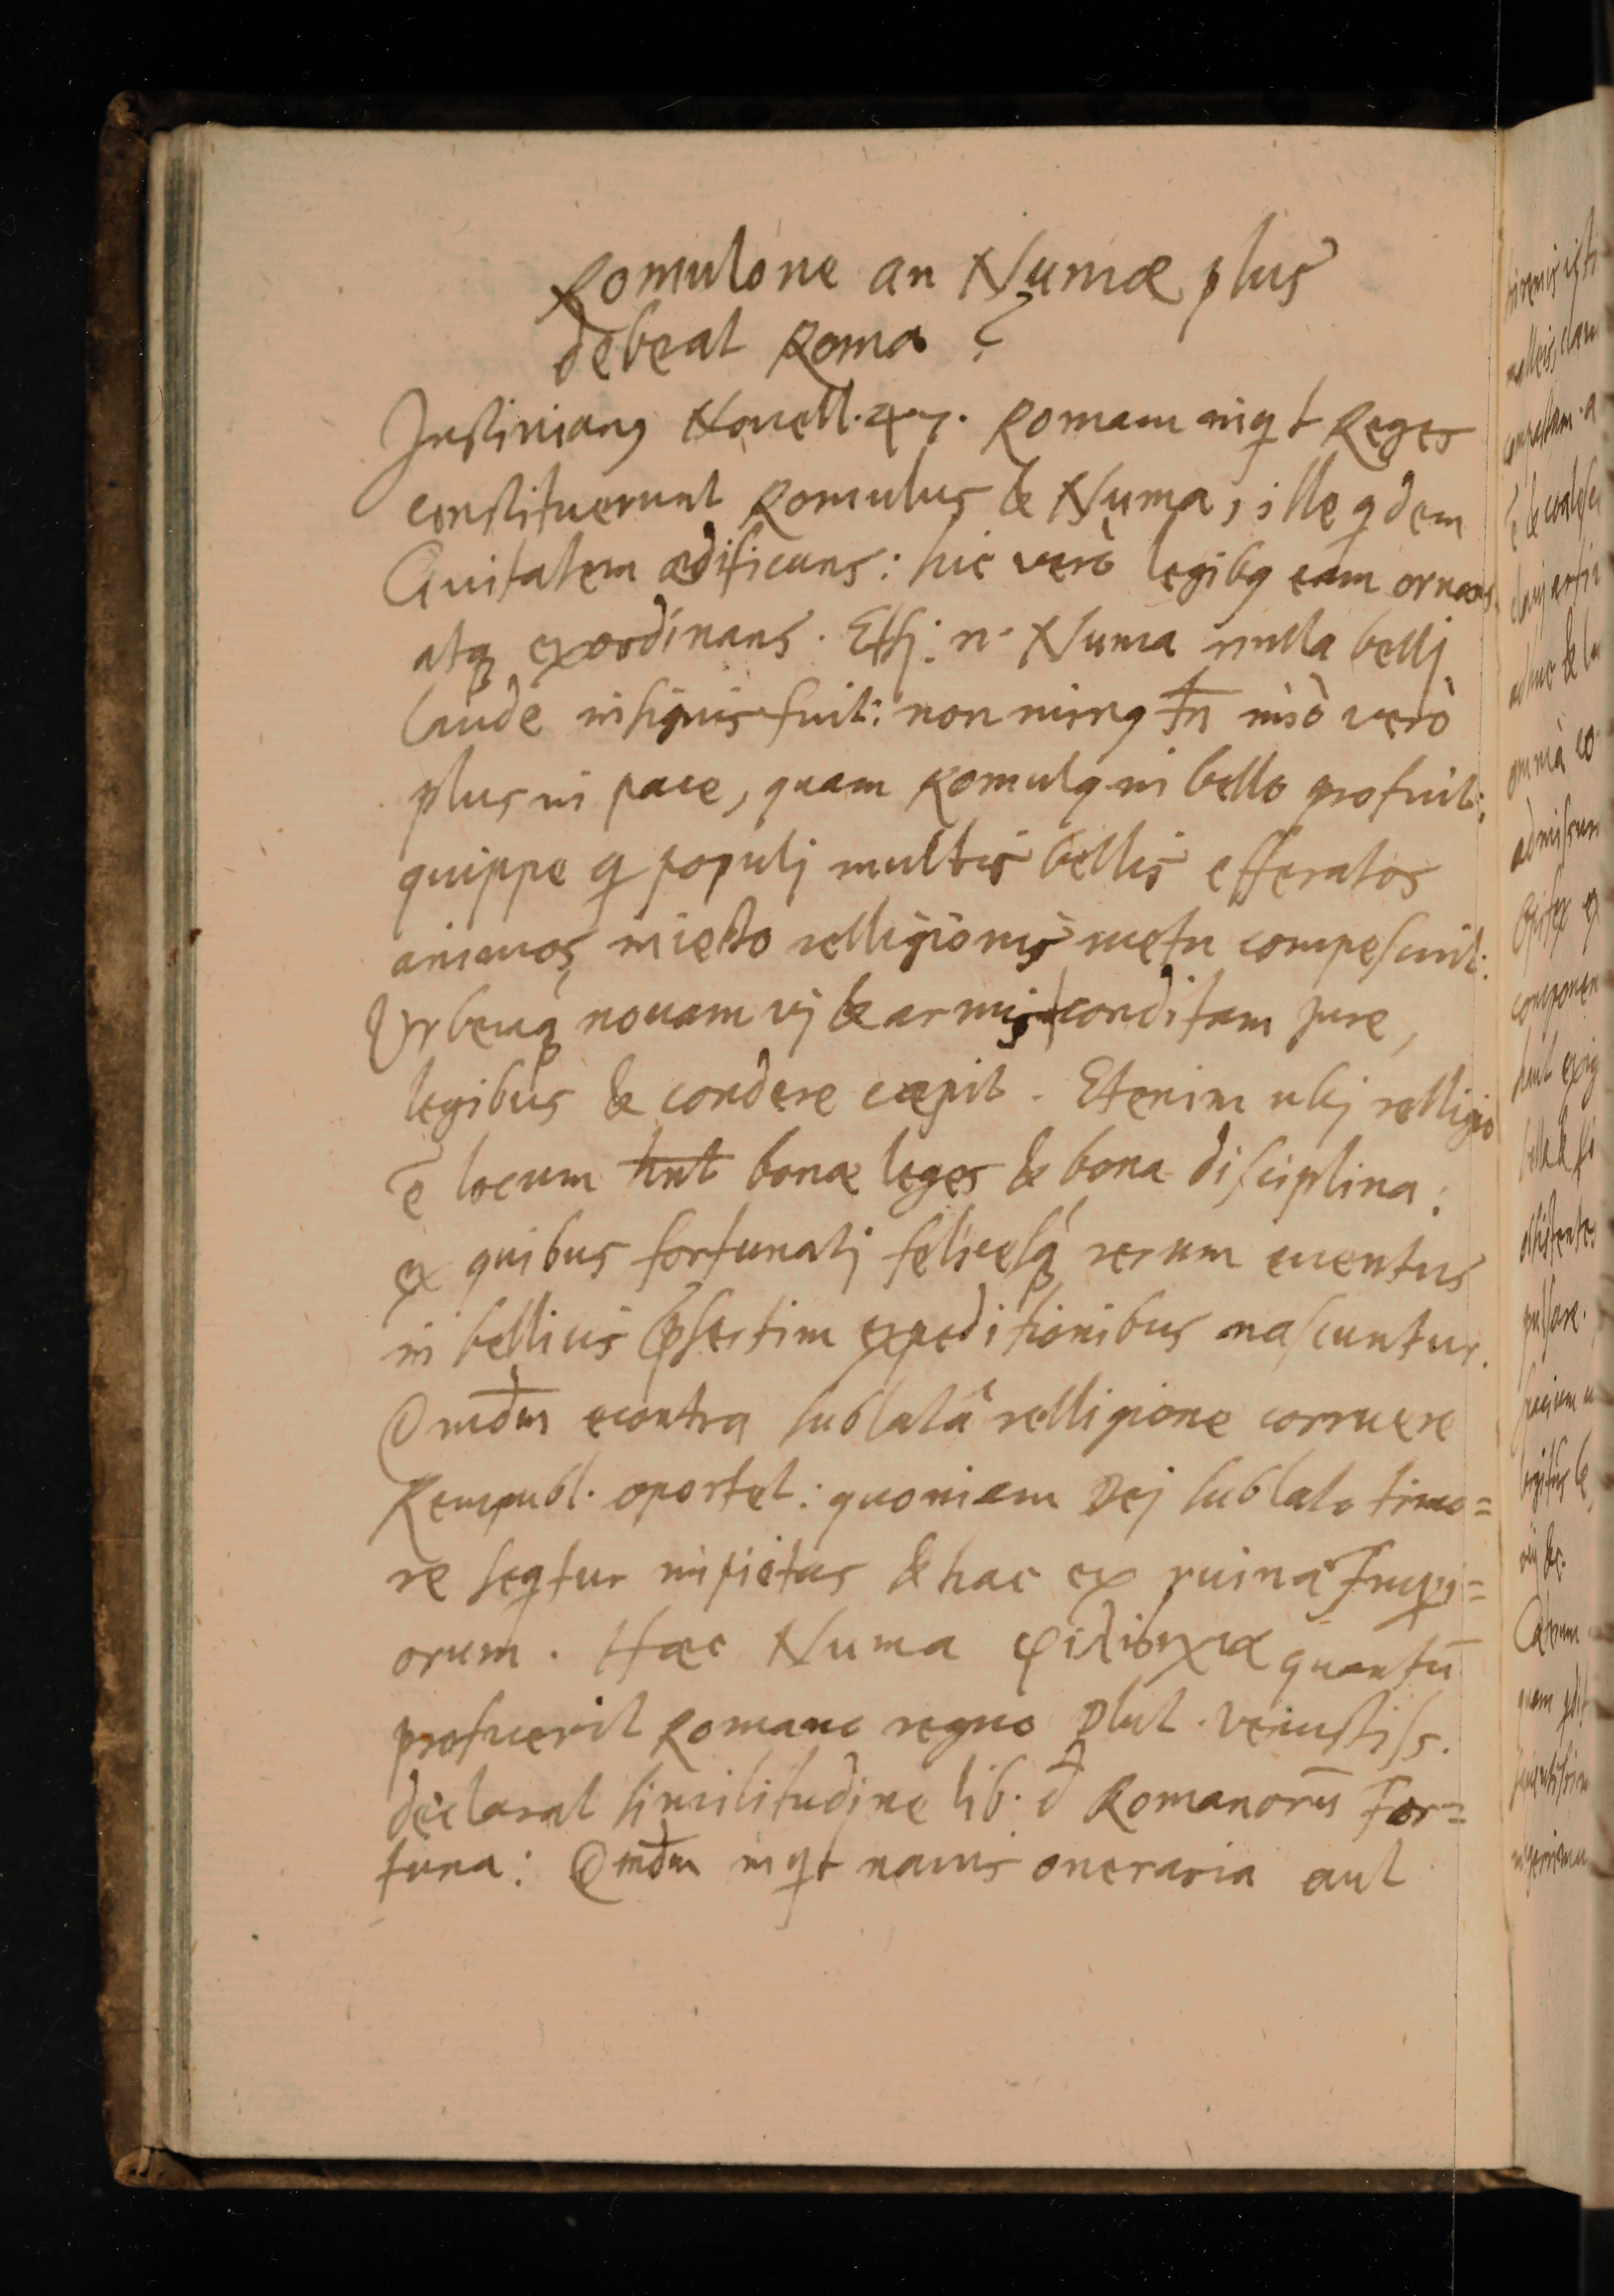 Romulóne an Numæ plus
debeat Roma?
Justinianꝰ Novell. 47. Romam inqt Reges
constituerunt Romulus & Numa, ille qdem
Civitatem ædificans: hic verò legibꝰ eam ornans
atq̨ exordinans. Etsj. n. Numa nulla bellj
laude insignis fuit: non minꝰ tn̄ imò verò
plus in pace, quam Romulꝰ in bello profuit:
quippe q populj multis bellis efferatos
animos iniecto relligionis metu compescuit:
Vrbemq̨ novam vj & armis conditam jure,
legibus & condere cæpit. Etenim ubj relligio
ē locum hn̄t bonæ leges & bona disciplina:
ex quibus fortunatj felicesq̨ rerum eventus
in bellicis p̄sertim expeditionibus nascuntur.
Qmd̄m econtra sublatâ relligione corruere
Rempubl. oportet: quoniam Dej sublato timo=
re seqtur impietas & hac ex ruina Imperi=
orum. Hæc Numa quantū
profuerit Romano regno Plut. venustiss.
declarat similitudine lib. d̄ Romanorū For=
tuna: Qmd̄m inqt navis oneraria aut